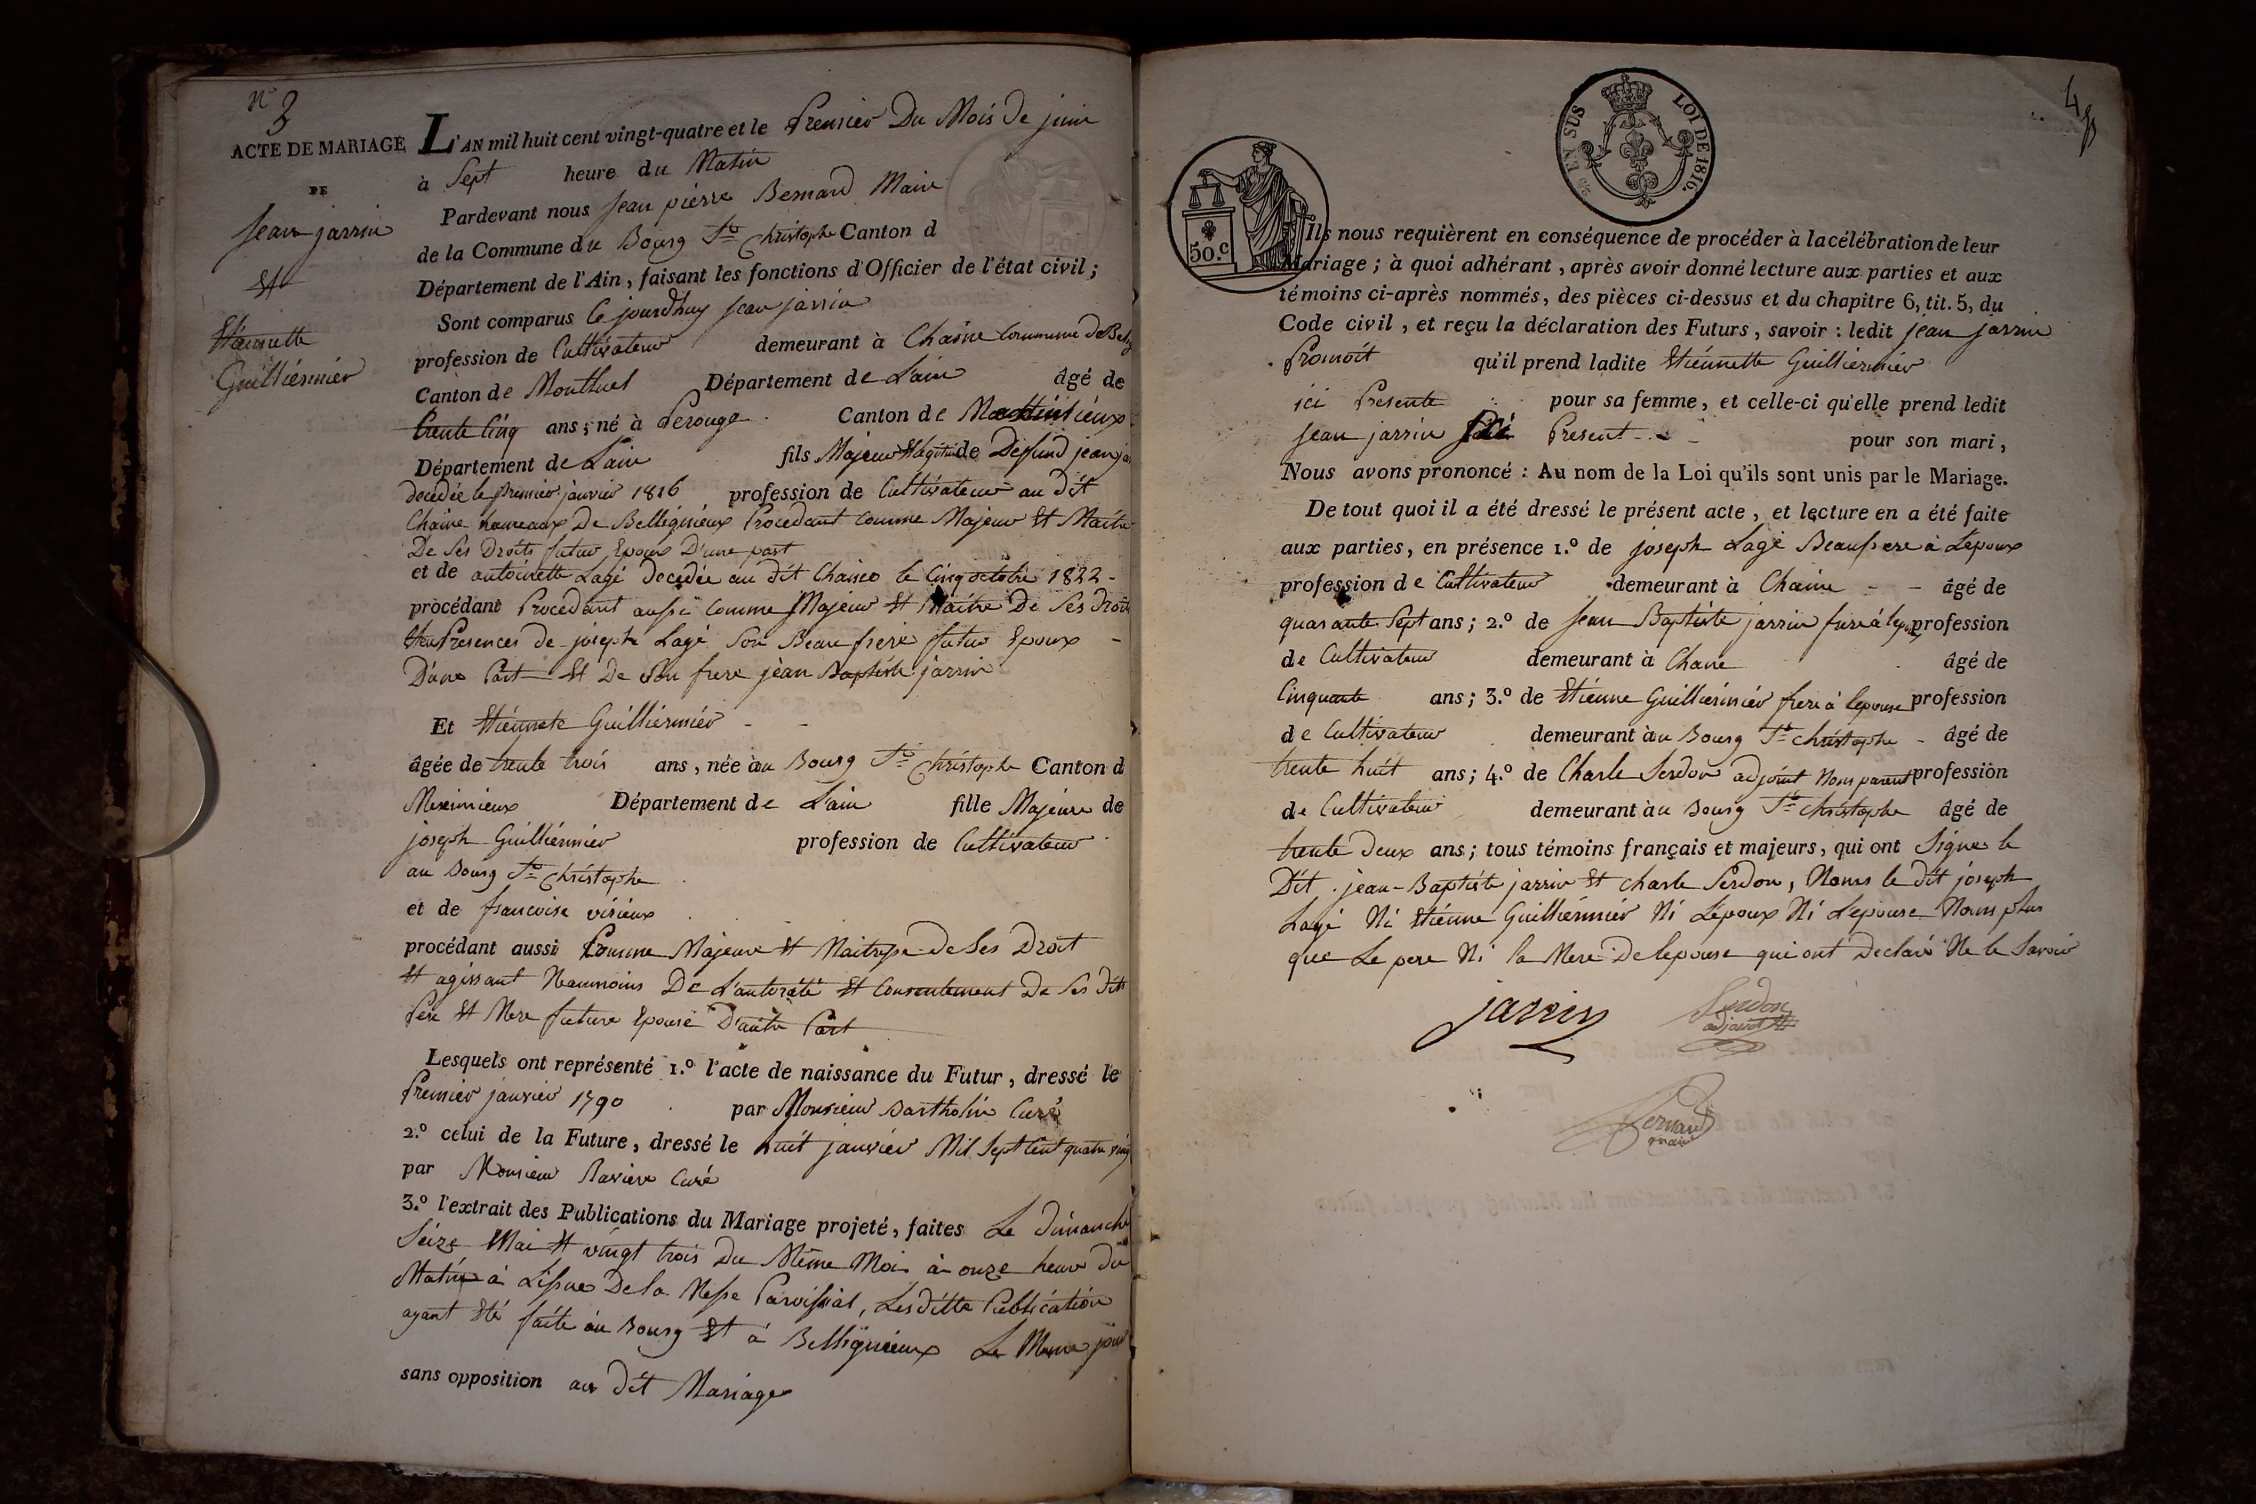 N° 3
ACTE DE MARIAGE
DE
Jean jarrin
Et
Etiennette
Guilliérmiér
L'AN mil huit cent vingt-quatre et le Premier Du Mois de juin
à Sept heure du Matin
Pardevant nous Jean pierre Bernard Maire
de la Commune du Bourg St Christophe Canton d
Département de l'Ain, faisant les fonctions d'Officier de l'état civil;
Sont comparus Ce jourdhuy jean jarrin
profession de Cultivateur demeurant à Chaine Commune De
Canton de Montluel Département de Lain âgé de
trente Cinq ans; né à Perouge Canton de
Département de Lain fils Majeur Legitime de Defund jean
decedée le Premiér janvier 1816 profession de Cultivateur au Dit
Chaine hameaux De Belligniéux Procedant comme Majeur Et Maitre
De Ses Droits futur Epoux D'une part
et de antoinette Lagé decedée au dit Chaines le Cinq octobre 1822 -
procédant Procedant aussi comme Majeur Et Maitre De Ses Droit
En Presences de joseph Lagé Son Beau frere futur Epoux -
D'une Part Et De Son frere jean Baptiste jarrin
Et Etiénnete Guilliérmiér - -
âgée de trente trois ans, née au Bourg St Christophe Canton d
Meximieux Département de Lain fille Majeure de
joseph Guilliérmiér profession de Cultivateur
au Bourg St Christophe
et de francoise viriéux
procédant aussi Comme Majeure Et Maitresse de Ses Droit
Et agissant Neanmoins De L'autorité Et Consentement De Ses Dit
Pere Et Mere future Epouse D'autre Part
Lesquels ont représenté 1.° l'acte de naissance du Futur, dressé le
Premiér janviér 1790 par Monsieur Bartholin Curé
2.° celui de la Future, dressé le huit janviér Mil Sept Cent quatre
par Monsieur Raviere Curé
3.° l'extrait des Publications du Mariage projeté, faites Le dimanche
Séize Mai Et vingt trois Du Même Mois à onze heure Du
Matin à Lissue De la Messe Paroissial, Lesditte Publication
ayant Eté faite au Bourg Et à Belligniéux Le Meme jour
sans opposition au dit Mariage
4
LOI DE 1816.
50.c
Ils nous requièrent en conséquence de procéder à la célébration de leur
Mariage; à quoi adhérant, après avoir donné lecture aux parties et aux
témoins ci-après nommés, des pièces ci-dessus et du chapitre 6, tit. 5, du
Code civil, et reçu la déclaration des Futurs, savoir: ledit jean jarrin
Promoit qu'il prend ladite Etiénnette Guilliérmiér
ici Presente pour sa femme, et celle-ci qu'elle prend ledit
jean jarrin Present - - pour son mari,
Nous avons prononcé: Au nom de la Loi qu'ils sont unis par le Mariage.
De tout quoi il a été dressé le présent acte, et lecture en a été faite
aux parties, en présence 1.° de joseph Lagé Beaufrere à Lepoux
profession de Cultivateur demeurant à Chaine - - âgé de
quarante Sept ans; 2.° de Jean Baptiste jarrin profession
de Cultivateur demeurant à Chane âgé de
Cinquante ans; 3.° de Etiénne Guilliérmiér frere à lepouse profession
de Cultivateur demeurant au Bourg St christophe - âgé de
trente huit ans; 4.° de Charle Serdon adjoint Nom parent profession
de Cultivateur demeurant au Bourg St christophe âgé de
trente Deux ans; tous témoins français et majeurs, qui ont Signes le
Dit jean-Baptiste jarrin Et charle Serdon, Nom le dit joseph
Lagé Ni Etiénne Guilliérmiér Ni Lépoux Ni Lepouse Nom plus
que Le pere Ni la Mere De lepouse qui ont Declaré Ne le Savoir
jarrin
Serdon
adjoint
Bernard
maire